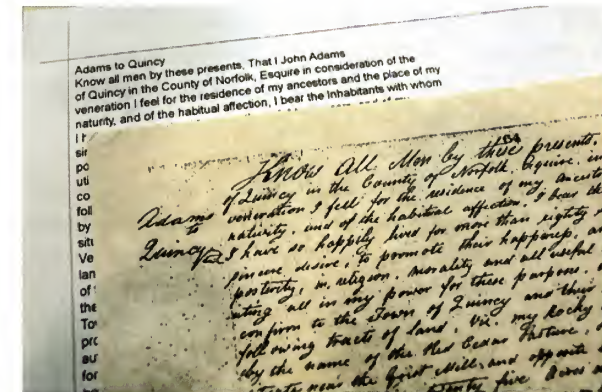 Adams to Quincy
Know all men by these presents, That I John Adams
of Quincy in the County of Norfolk, Esquire in consideration of the
veneration I feel for the residence of my ancestors and the place of my
naturity, and of the habitual affection, I bear the Inhabitants with whom
I h
sin
po
uti
co
foll
by
situ
Ve
lan
of
the
Tov
pro
au
for
Know All Men by these presents,
of Quincy in the County of Norfolk. Esquire, in
Adams veneration I fell for the residence of my ancest
to naturity, and of the habitual affection, I bear the
Quincy I have so happily lived for more than eighty
sincere desire, to promote their happiness, an
posterity, in religion, morality and all useful
uting all in my power for these purpose,
confirm to the Town of Quincy and their
following tracts of land, Viz. my Rocky
by the name of the Red Cedar Pasture,
near the Grist Mill, and opposite
five Acres